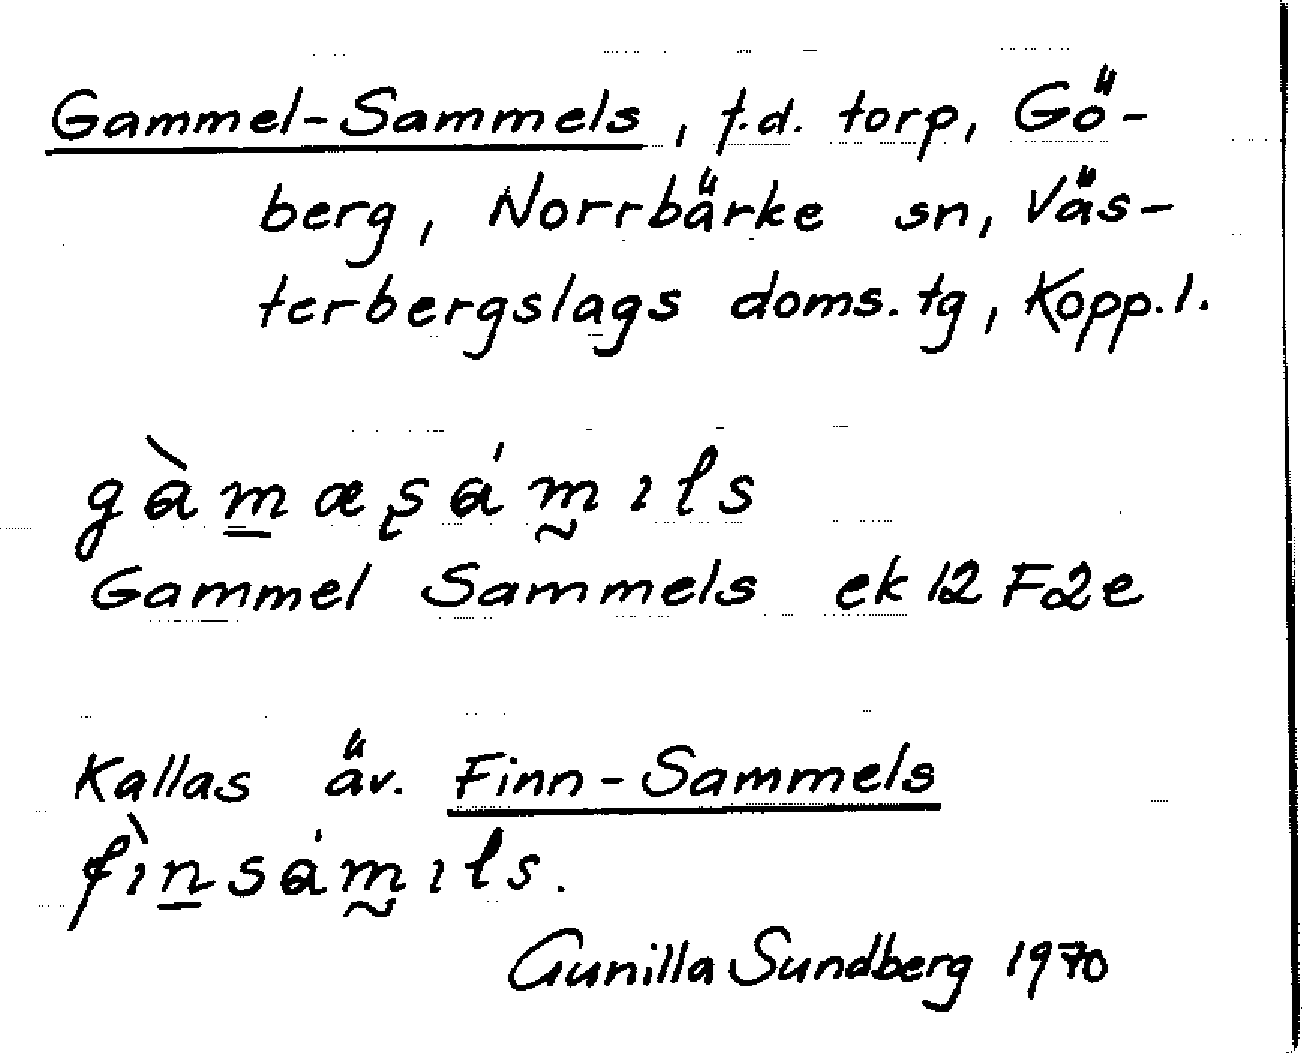 Gammel-Sammels, f.d. torp, Gö-
berg, Norrbärke sn, Väs-
terbergslags doms. tg, Kopp. l.
gàm̲æʂám̰ıls
Gammel Sammels ek 12 F2e
Kallas äv. Finn-Sammels
fìn̲sám̰ıls.
Gunilla Sundberg 1970